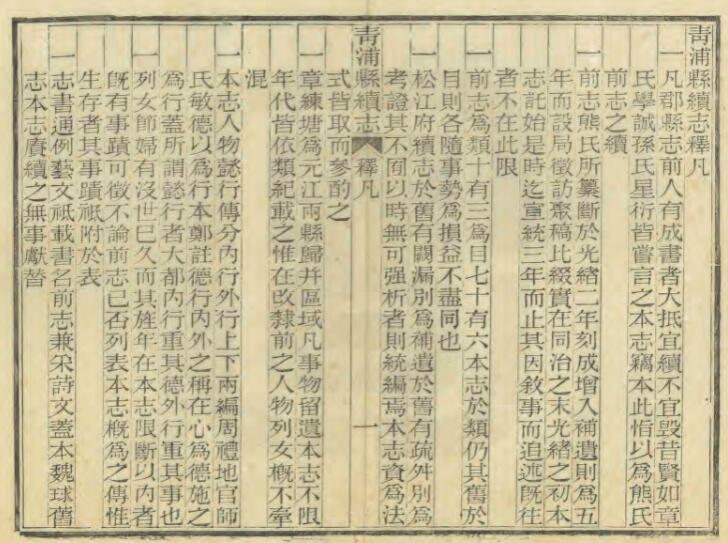 青浦縣續志釋凡
一凡郡縣志前人有成書者大抵宜續不宜毀昔賢如章
氏學誠孫氏星衍皆嘗言之本志竊本此恉以爲熊氏
前志之續
一前志熊氏所纂斷於光緒二年刻成增入補遺則爲五
年而設局徵訪聚稿比綴實在同治之末光緒之初本
志託始是時迄宣統三年而止其因敘事而追述旣往
者不在此限
一前志爲類十有三爲目七十有六本志於類仍其舊於
目則各隨事勢爲損益不盡同也
一松江府續志於舊有闕漏別爲補遺於舊有疏舛別爲
考證其不囿以時無可强析者則統編焉本志資爲法
青浦縣續志
釋凡
一
式皆取而參酌之
一章練塘爲元江兩縣歸并區域凡事物留遺本志不限
年代皆依類紀載之惟在改隸前之人物列女槪不牽
混
一本志人物懿行傳分內行外行上下兩編周禮地官師
氏敏德以爲行本鄭註德行內外之稱在心爲德施之
爲行蓋所謂懿行者大都內行重其德外行重其事也
一列女師婦有沒世巳久而其旌年在本志限斷以內者
旣有事蹟可徵不論前志已否列表本志槪爲之傳惟
生存者其事蹟祗附於表
一志書通例藝文祗載書名前志兼采詩文蓋本魏球舊
志本志賡續之無事獻替